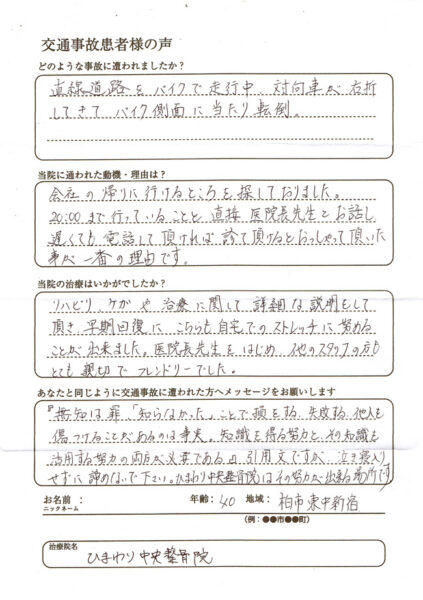 交通事故患者様の声
どのような事故に遭われましたか？
直線道路をバイクで走行中、対向車が右折
してきて バイク側面に当たり転倒。
当院に通われた動機・理由は？
会社の帰りに行けるところを探しておりました。
20:00まで行っていることと、直接 医院長先生とお話し、
遅くても 電話して頂ければ 診て頂けるとおっしゃって頂いた
事が一番の理由です。
当院の治療はいかがでしたか？
リハビリ、ケガや治療に関して詳細な説明もして
頂き、早期回復に こちらも自宅でのストレッチに努める
ことが出来ました。医院長先生をはじめ、他のスタッフの方も
とても親切でフレンドリーでした。
あなたと同じように交通事故に遭われた方へメッセージをお願いします
『無知は罪、「知らなかった。」ことで損をする、失敗する、他人を
傷つけることがあるのは事実。知識を得る努力と、その知識を
活用する努力の両方が必要である。』引用文ですが、泣き寝入り
せずに諦めないで下さい。ひまわり中央整骨院はその努力が出来る場所です。
お名前：　年齢：40　地域：柏市東中新宿
ニックネーム
（例：●●市●●町）
治療院名
ひまわり中央整骨院